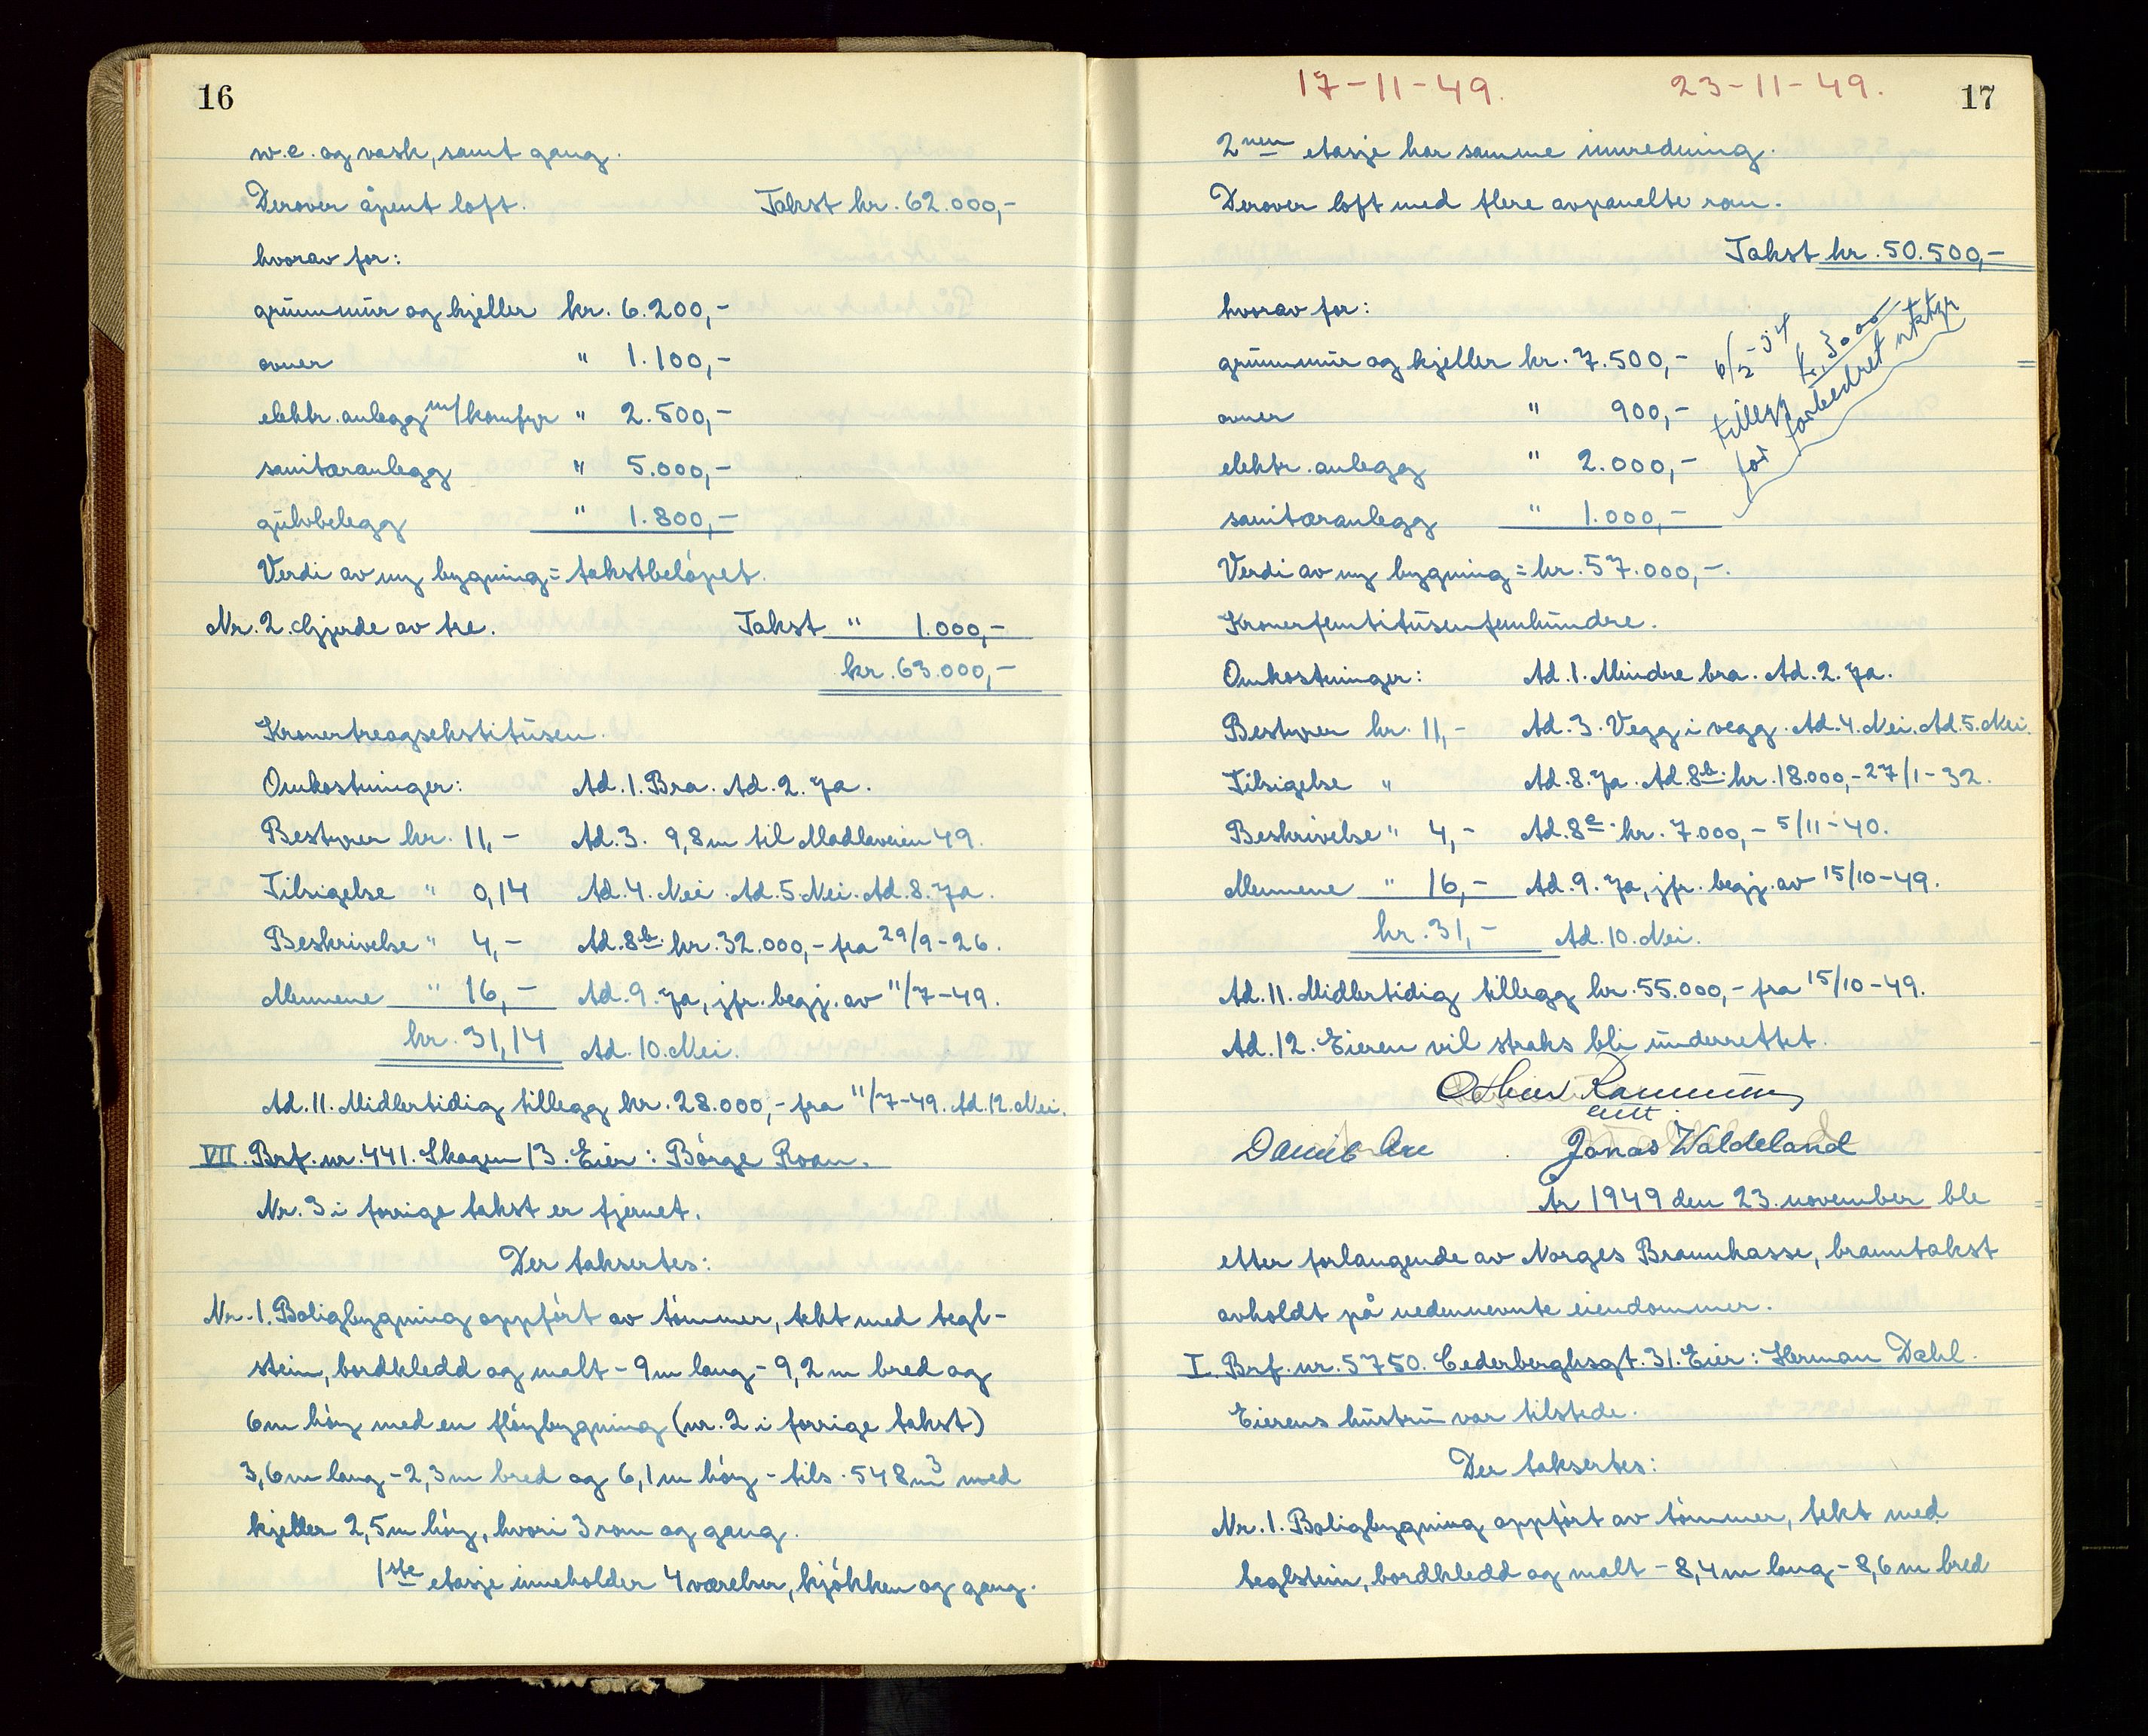 16
w.c. og vask, samt gang.
Derover åpent loft. Takst kr. 62.000,-
hvorav for:
grunnmur og kjeller kr. 6.200,-
ovner " 1.100,-
elektr. anlegg m/komfyr " 2.500,-
sanitæranlegg " 5.000,-
gulvbelegg " 1.800,-
Verdi av ny bygning = takstbeløpet.
Nr. 2. Gjerde av tre. Takst " 1.000,-
kr. 63.000,-
Kronertreogsekstitusen.
Omkostninger: Ad. 1. Bra. Ad. 2. Ja.
Bestyrer kr. 11,- Ad. 3. 9,8 m til Madlaveien 49.
Tilsigelse " 0,14 Ad. 4. Nei. Ad. 5. Nei. Ad. 8. Ja.
Beskrivelse " 4,- Ad. 8b. kr. 32.000,- fra 29/9-26.
Mennene " 16,- Ad. 9. Ja, jfr. begj. av 11/7-49.
kr. 31,14 Ad. 10. Nei.
Ad. 11. Midlertidig tillegg kr. 28.000,- fra 11/7-49. Ad. 12. Nei.
VII. Brf. nr. 441. Skagen 13. Eier: Børge Roan.
Nr. 3 i forrige takst er fjernet.
Der taksertes:
Nr. 1. Boligbygning oppført av tømmer, tekt med tegl-
stein, bordkledd og malt - 9 m lang - 9,2 m bred og
6 m høy med en fløybygning (nr. 2 i forrige takst)
3,6 m lang - 2,3 m bred og 6,1 m høy - tils. 548 m3 med
kjeller 2,5 m høy, hvori 3 rom og gang.
1ste etasje inneholder 4 værelser, kjøkken og gang.
17-11-49. 23-11-49. 17
2nen etasje har samme innredning.
Derover loft med flere avpanelte rom.
Takst kr. 50.500,-
hvorav for:
grunnmur og kjeller kr. 7.500,-
ovner " 900,-
elektr. anlegg " 2.000,-
sanitæranlegg " 1.000,-
6/2-54
tillegg kr. 3000
for forbedret utstyr
Verdi av ny bygning = kr. 57.000,-.
Kronerfemtitusenfemhundre.
Omkostninger: Ad. 1. Mindre bra. Ad. 2. Ja.
Bestyrer kr. 11,- Ad. 3. Vegg i vegg. Ad. 4. Nei. Ad. 5. Nei.
Tilsigelse " Ad. 8. Ja. Ad. 8b. kr. 18.000,- 27/1-32.
Beskrivelse " 4,- Ad. 8c. kr. 7.000,- 5/11-40.
Mennene " 16,- Ad. 9. Ja, jfr. begj. av 15/10-49.
kr. 31,- Ad. 10. Nei.
Ad. 11. Midlertidig tillegg kr. 55.000,- fra 15/10-49.
Ad. 12. Eieren vil straks bli underrettet.
Jonas Waldeland
År 1949 den 23. november ble
etter forlangende av Norges Brannkasse, branntakst
avholdt på nedennevnte eiendommer.
I. Brf. nr. 5750. Cederberghsgt. 31. Eier: Herman Dahl.
Eierens hustru var tilstede.
Der taksertes:
Nr. 1. Boligbygning oppført av tømmer, tekt med
teglstein, bordkledd og malt - 8,4 m lang - 8,6 m bred